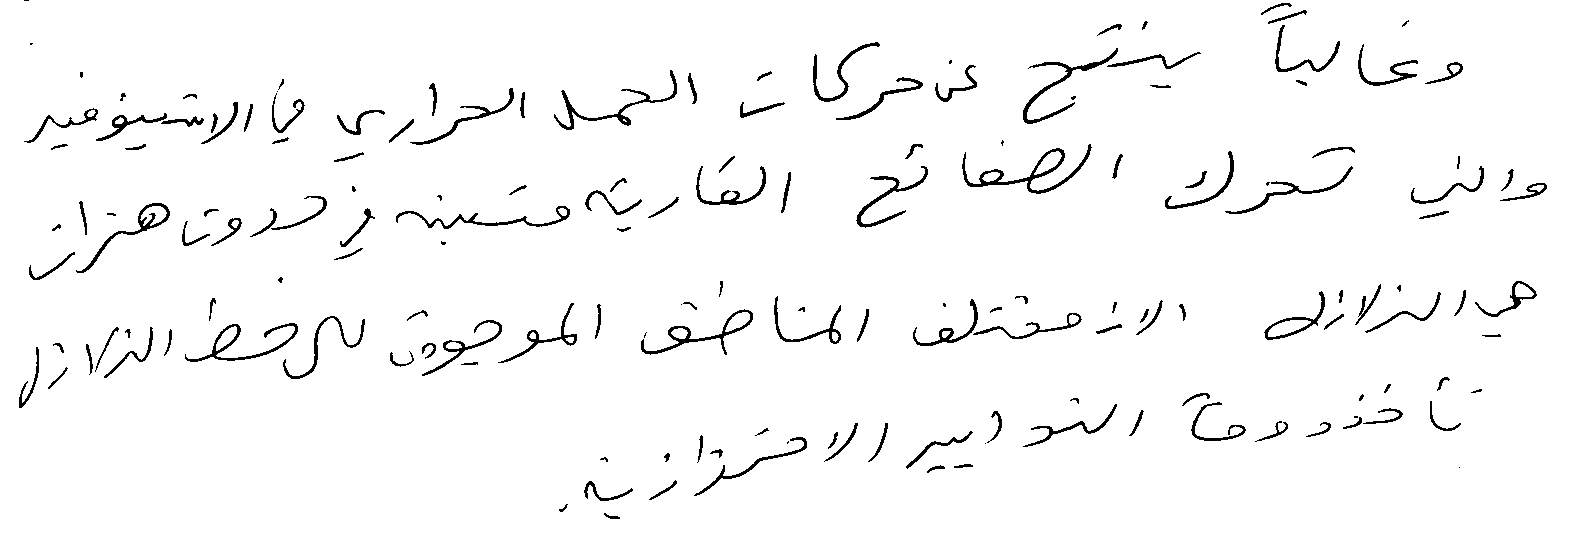 وغالباً ينتج عن حركات الحمل الحراري في الاستينوفير
والتي تحرك الصفائح القارية متسببه في حدوث هزات
هي الزلازل الان مختلف المناطق الموجودة على خط الزلازل
تأخذ دوماً التدابير الاحترازية.